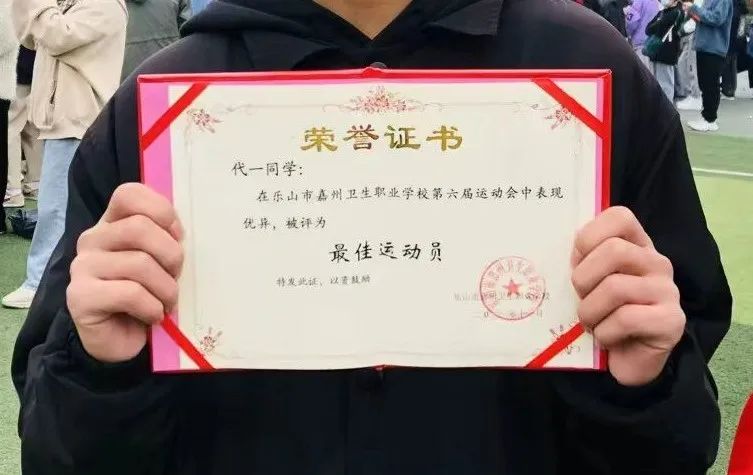 荣誉证书
代一同学：
在乐山市嘉州卫生职业学校第六届运动会中表现
优异，被评为
最佳运动员
特发此证，以资鼓励
乐山市嘉州卫生职业学校